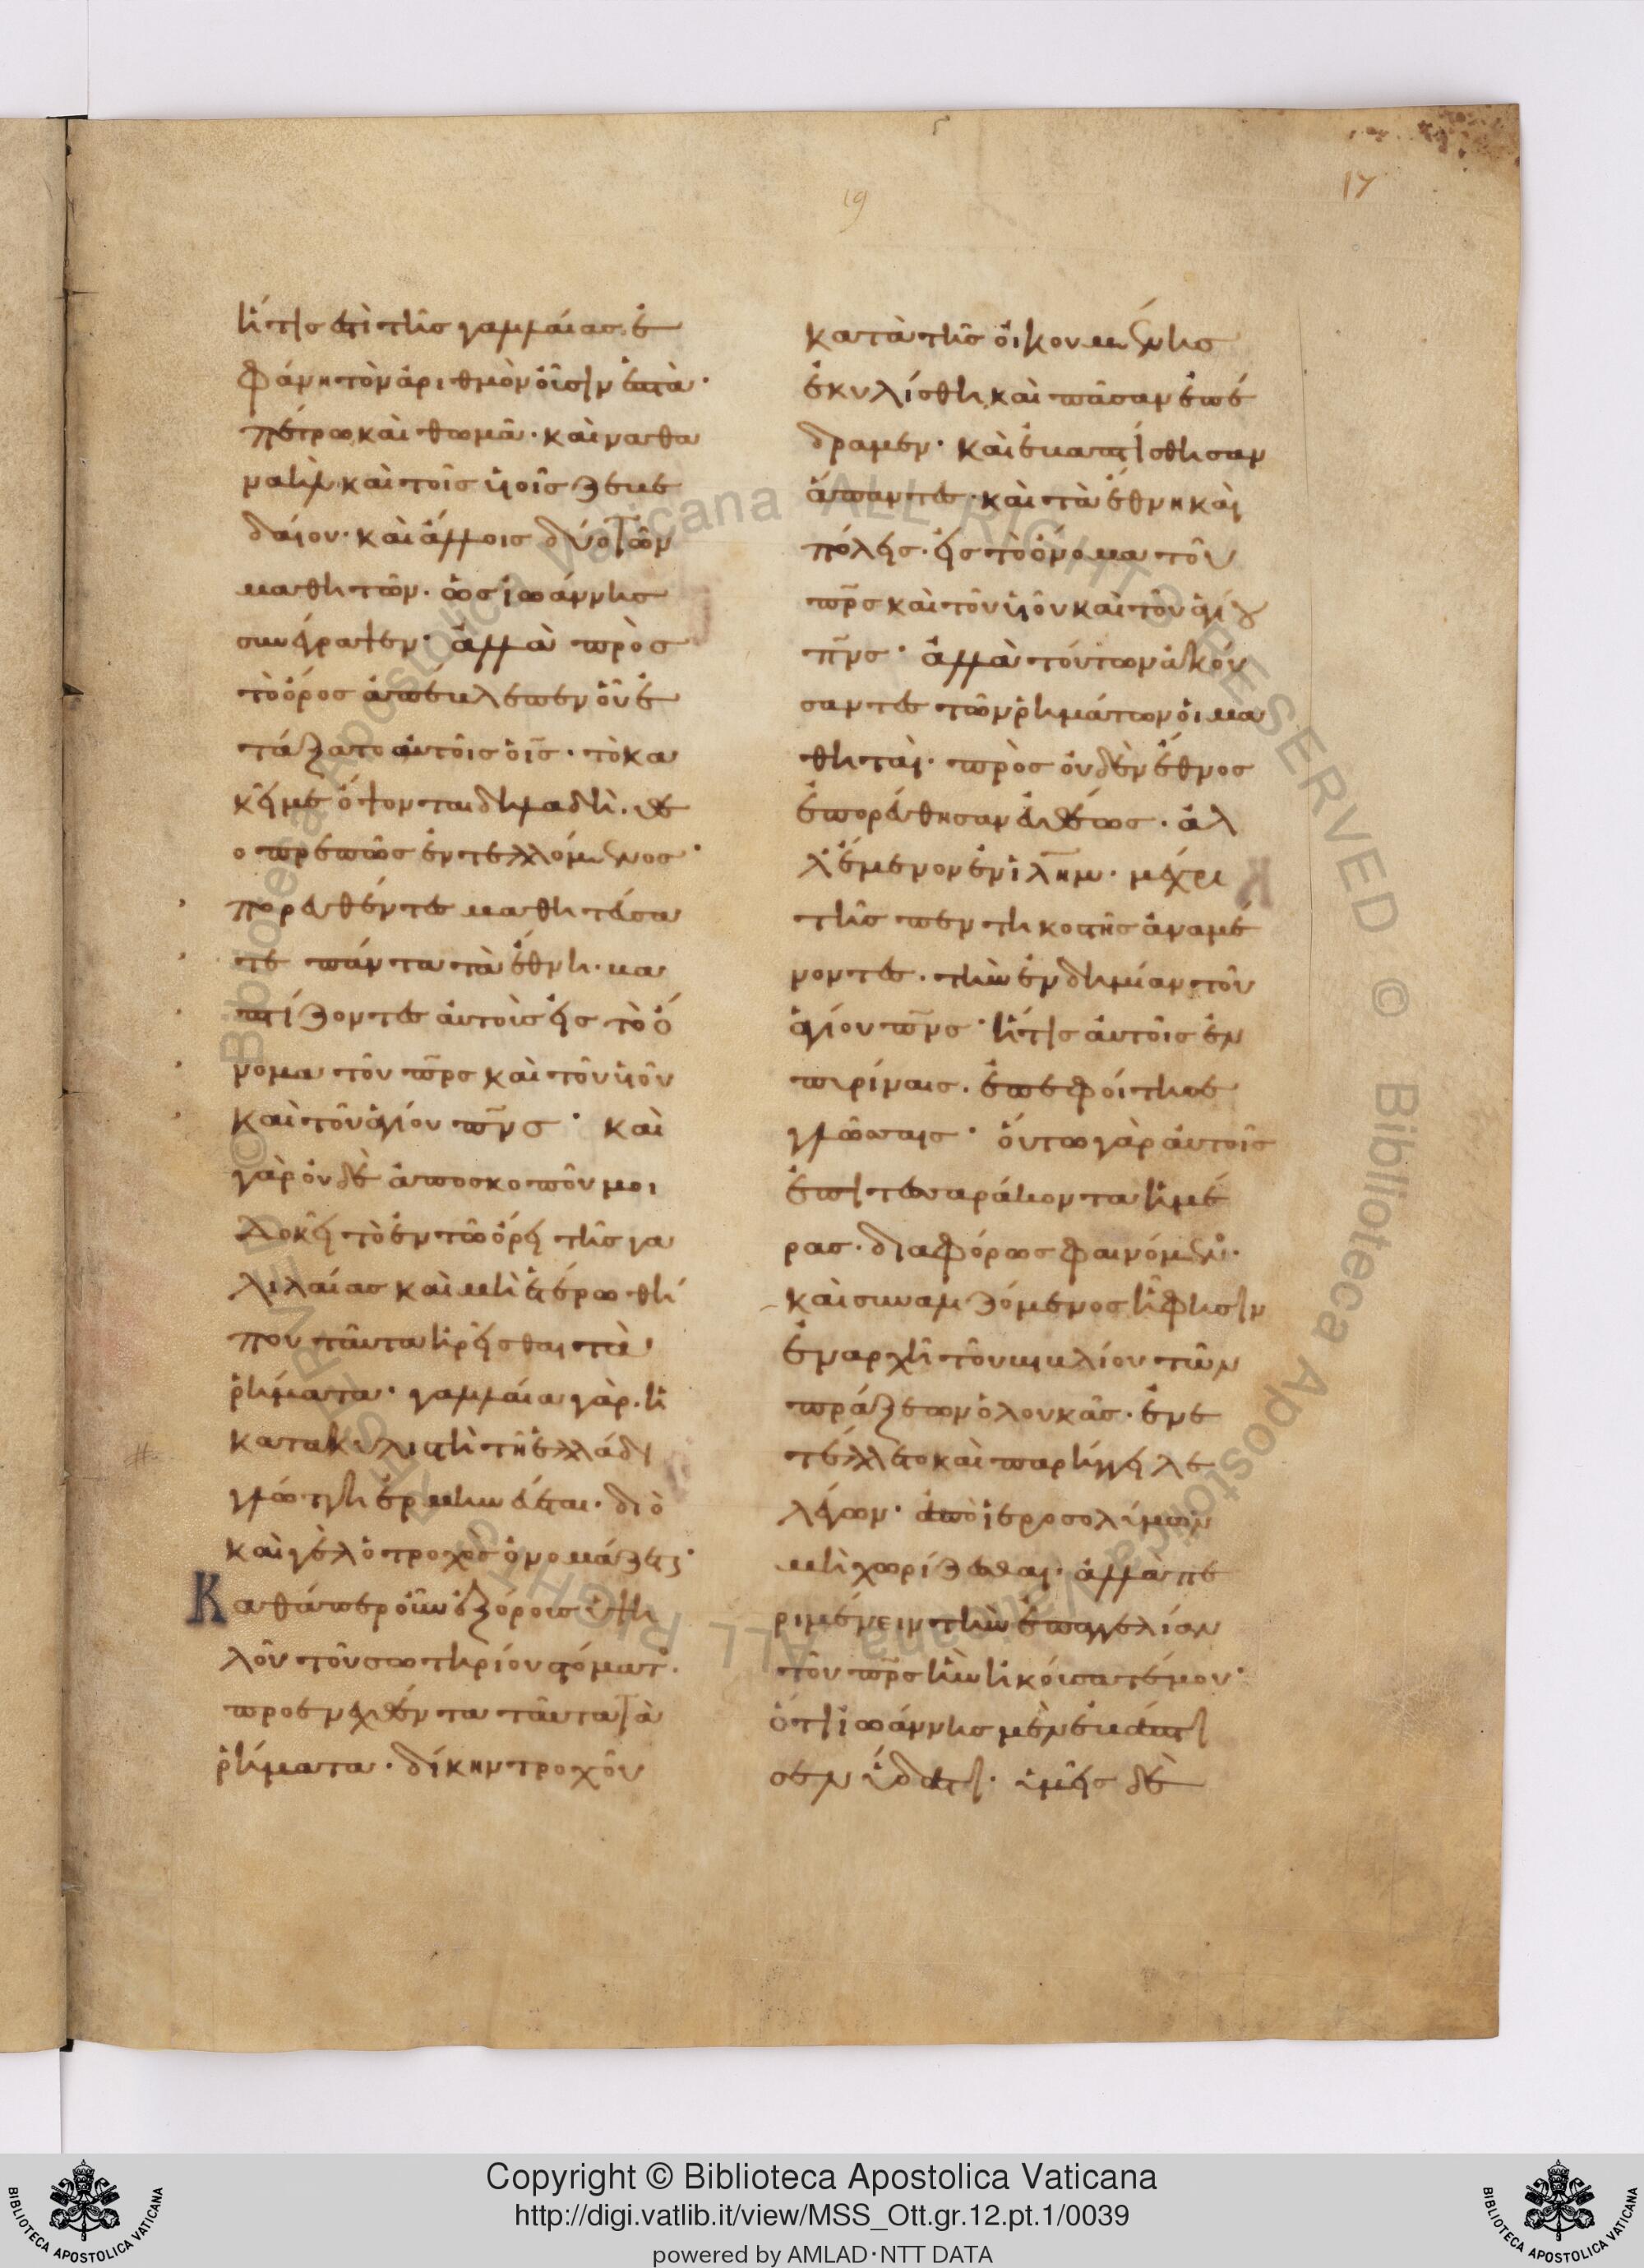 19
17
ἥτις ἐπὶ τῆς γαλλιλαίας ἐ
φάνη τὸν ἀριθμὸν οὖσιν ἑπτὰ·
πέτρω καὶ θωμᾶ· καὶ ναθα
ναὴλ καὶ τοῖς υἱοῖς ζεβε
δαίου· καὶ ἄλλοις δύο τῶν
μαθητῶν. ὡς ἰωάννης
συνέγραψεν· ἀλλὰ πρὸς
τὸ ὄρος
τάξατο αὐτοῖς ὁ ις· τὸ κα
κεῖ με ὄψονται
πορευθέντες μαθητεύσα
τε πάντα τὰ ἔθνη· βα
πτίζοντες αὐτοὺς εἰς τὸ ὄ
νομα τοῦ πρς καὶ τοῦ υἱοῦ
καὶ τοῦ ἁγίου πνς· καὶ
γὰρ οὐδὲ ἀποσκοποῦν μοι
δοκεῖ τὸ ἐν τῶ ὄρει τῆς γα
λιλαίας καὶ μὴ ἑτέρωθί
που ταῦτα εἰρῆσθαι τὰ
ῥήματα· γαλλιλαία γὰρ. ἡ
κατακυλιστὴ τῆ ἑλλάδι
γλώττη ἑρμηνεύεται· διὸ
καὶ γὲλ ὁ τροχὸς ὀνομάζεται·
Καθάπερ οὖν ἐξ ὄρους ὑψη
λοῦ τοῦ σωτηρίου στόματος.
προενεχθέντα ταῦτα τὰ
ῥήματα· δίκην τροχοῦ
κατὰ τῆς οἰκουμένης
ἐκυλίσθη καὶ πᾶσαν ἐπέ
δραμεν· καὶ ἐβαπτίσθησαν
ἅπαντες· καὶ τὰ ἔθνη καὶ
πόλεις· εἰς τὸ ὄνομα τοῦ
πρς καὶ τοῦ υἱοῦ καὶ τοῦ ἁγίου
πνς· ἀλλὰ τούτων ἀκού
σαντες τῶν ῥημάτων οἱ μα
θηταὶ· πρὸς οὐδὲν ἔθνος
ἐπορεύθησαν εὐθέως· ἀλ
λ' ἔμενον ἐν ἱλημ· μέχρι
τῆς πεντηκοστῆς ἀναμέ
νοντες. τὴν ἐνδημίαν τοῦ
ἁγίου πνς· ἥτις αὐτοῖς ἐν
πυρίναις. ἐπεφοίτησε
γλώσσαις· οὕτω γὰρ αὐτοῖς
ἐπὶ τεσσαράκοντα ἡμέ
ρας· διαφόρως φαινόμενος·
καὶ συναλιζόμενος ἧ φησὶν
ἐν ἀρχῆ τοῦ βιβλίου τῶν
πράξεων ὁ λουκᾶς· ἐνε
τέλλετο καὶ παρήγγελε
λέγων· ἀπὸ ἱεροσολύμων
μὴ χωρίζεσθαι· ἀλλὰ πε
ριμένειν τὴν ἐπαγγελίαν
τοῦ πρς ἣν ἠκούσατέ μου·
ὅτι ἰωάννης μὲν ἐβάπτι
σεν ὕδατι· ὑμεῖς δὲ
Copyright © Biblioteca Apostolica Vaticana
http://digi.vatlib.it/view/MSS_Ott.gr.12.pt.1/0039
powered by AMLAD·NTT DATA
BIBLIOTECA APOSTOLICA VATICANA
BIBLIOTECA APOSTOLICA VATICANA
© Biblioteca Apostolica Vaticana ALL RIGHTS RESERVED © Biblioteca Apostolica Vaticana ALL RIGHTS RESERVED